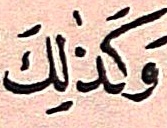 وَكَذٰلِكَ